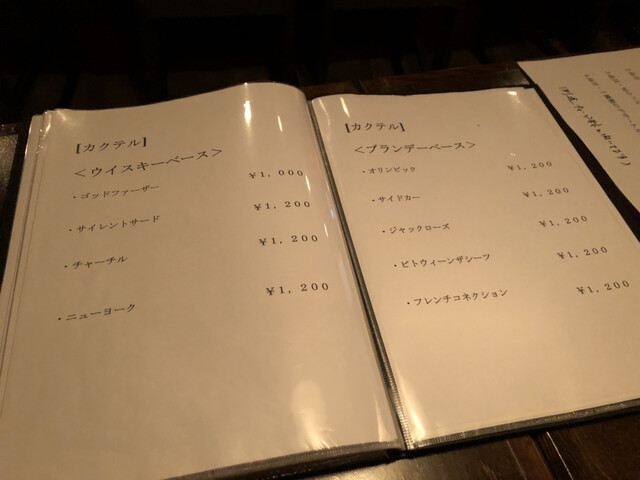 [カクテル]
<ウイスキーベース>
・ゴッドファーザー ¥1,000
・サイレントサード ¥1,200
・チャーチル ¥1,200
・ニューヨーク ¥1,200
[カクテル]
<ブランデーベース>
・オリンピック ¥1,200
・サイドカー ¥1,200
・ジャックローズ ¥1,200
・ビトウィーンザシーツ ¥1,200
・フレンチコネクション ¥1,200